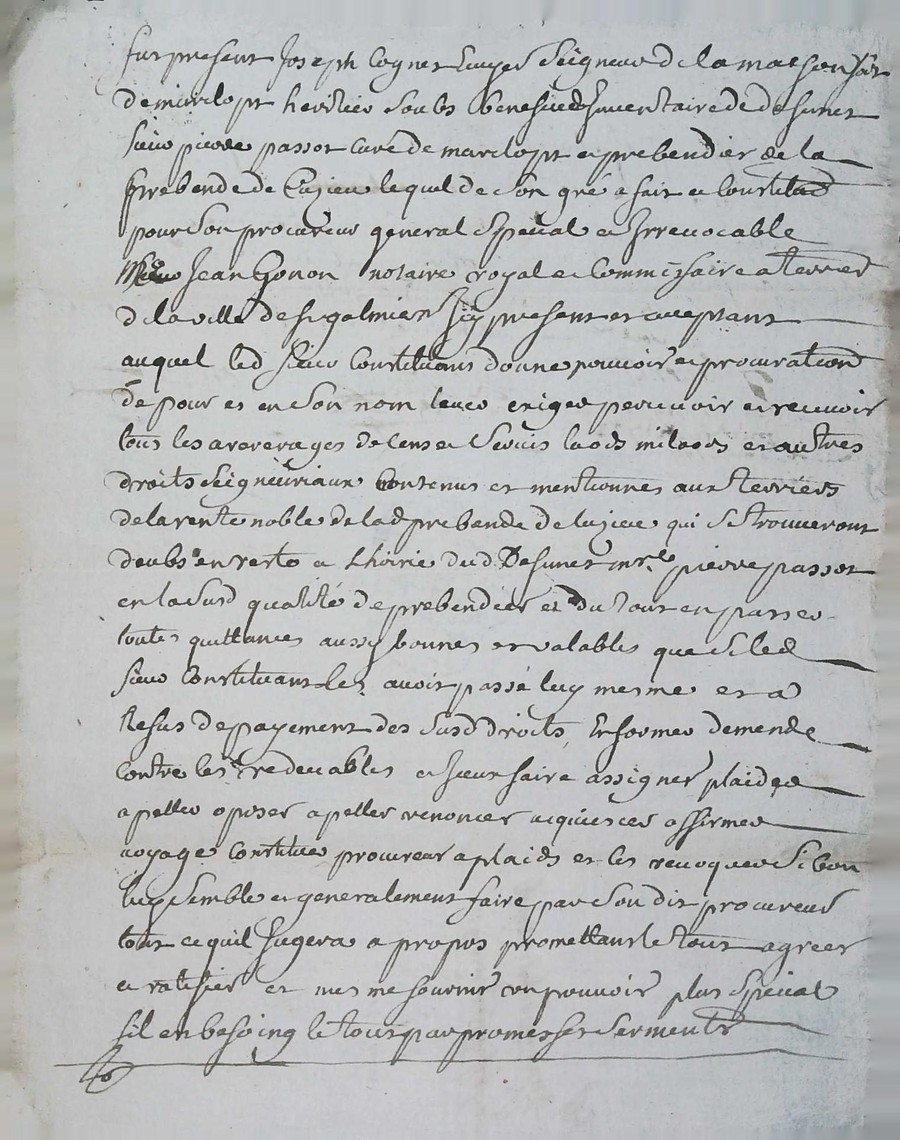 fut present Joseph Cognet Ecuyer Seigneur de la maison fort
de marclopt heritier soubs benefice d'inventaire de defunct
sieur pierre passot curé de marclopt et prebendier de la
prebende de Cuzieu lequel de son gré a fait et constitué
pour son procureur general special et Irrevocable
Jean Gonon notaire royal et Commissaire a terrier
de la ville de st galmier Icy present et acceptant
auquel led sieur Constituant donne pouvoir et procuration
de pour et en son nom lever exiger percevoir et recevoir
tous les arrerages de cens et servis laods milaods et autres
droits seigneuriaux Contenus et mentionnes aux terriers
de la rente noble de lad prebende de Cuzieu qui se trouveront
deubs en reste a Lhoirie dud Defunct mre pierre passot
en la susd qualité de prebendier et du tout en passer
toutes quittances aussy bonnes et valables que si led
sieur Constituant les avoit passé luy mesme et a
Refus de payement des susd droits, En former demende
contre les redevables et Iceux faire assigner plaider
apeller oposer apeller renoncer acquiescer affirmer
voyage Constituer procureur a plaids et les revoquer si bon
luy semble et generalement faire par son dit procureur
tout ce quil Jugera a propos promettant le tout agreer
et ratifier et mesme fournir pouvoir plus special
sil en besoing le tout par promesses serments